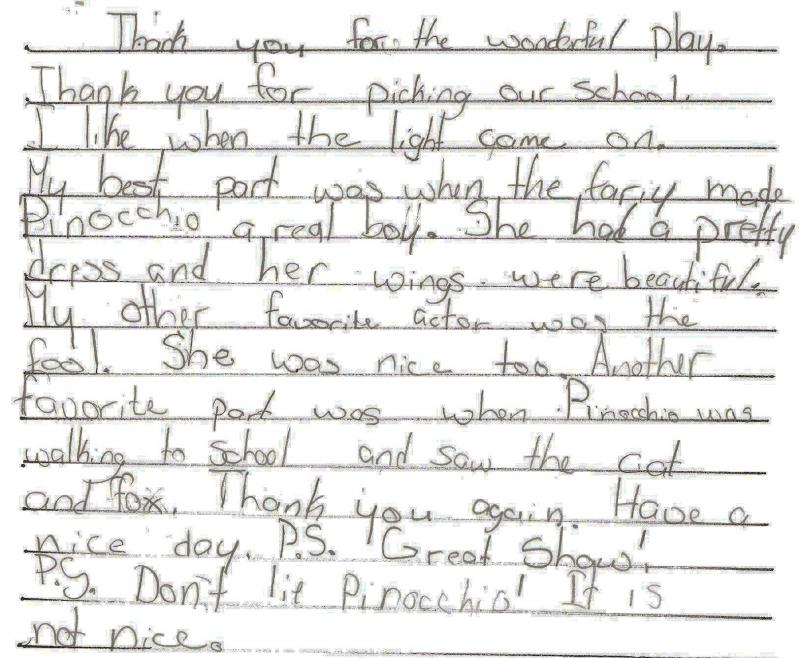 Thank you for the wonderful play.
Thank you for picking our school.
I like when the light came on.
My best part was when the fariy made
Pinocchio a real boy. She had a pretty
dress and her wings were beautiful.
My other favorite actor was the
fool. She was nice too. Another
favorite part was when Pinocchio was
walking to school and saw the cat
and fox. Thank you again. Have a
nice day. P.S. Great Show!
P.S. Don't lie Pinocchio! It is
not nice.